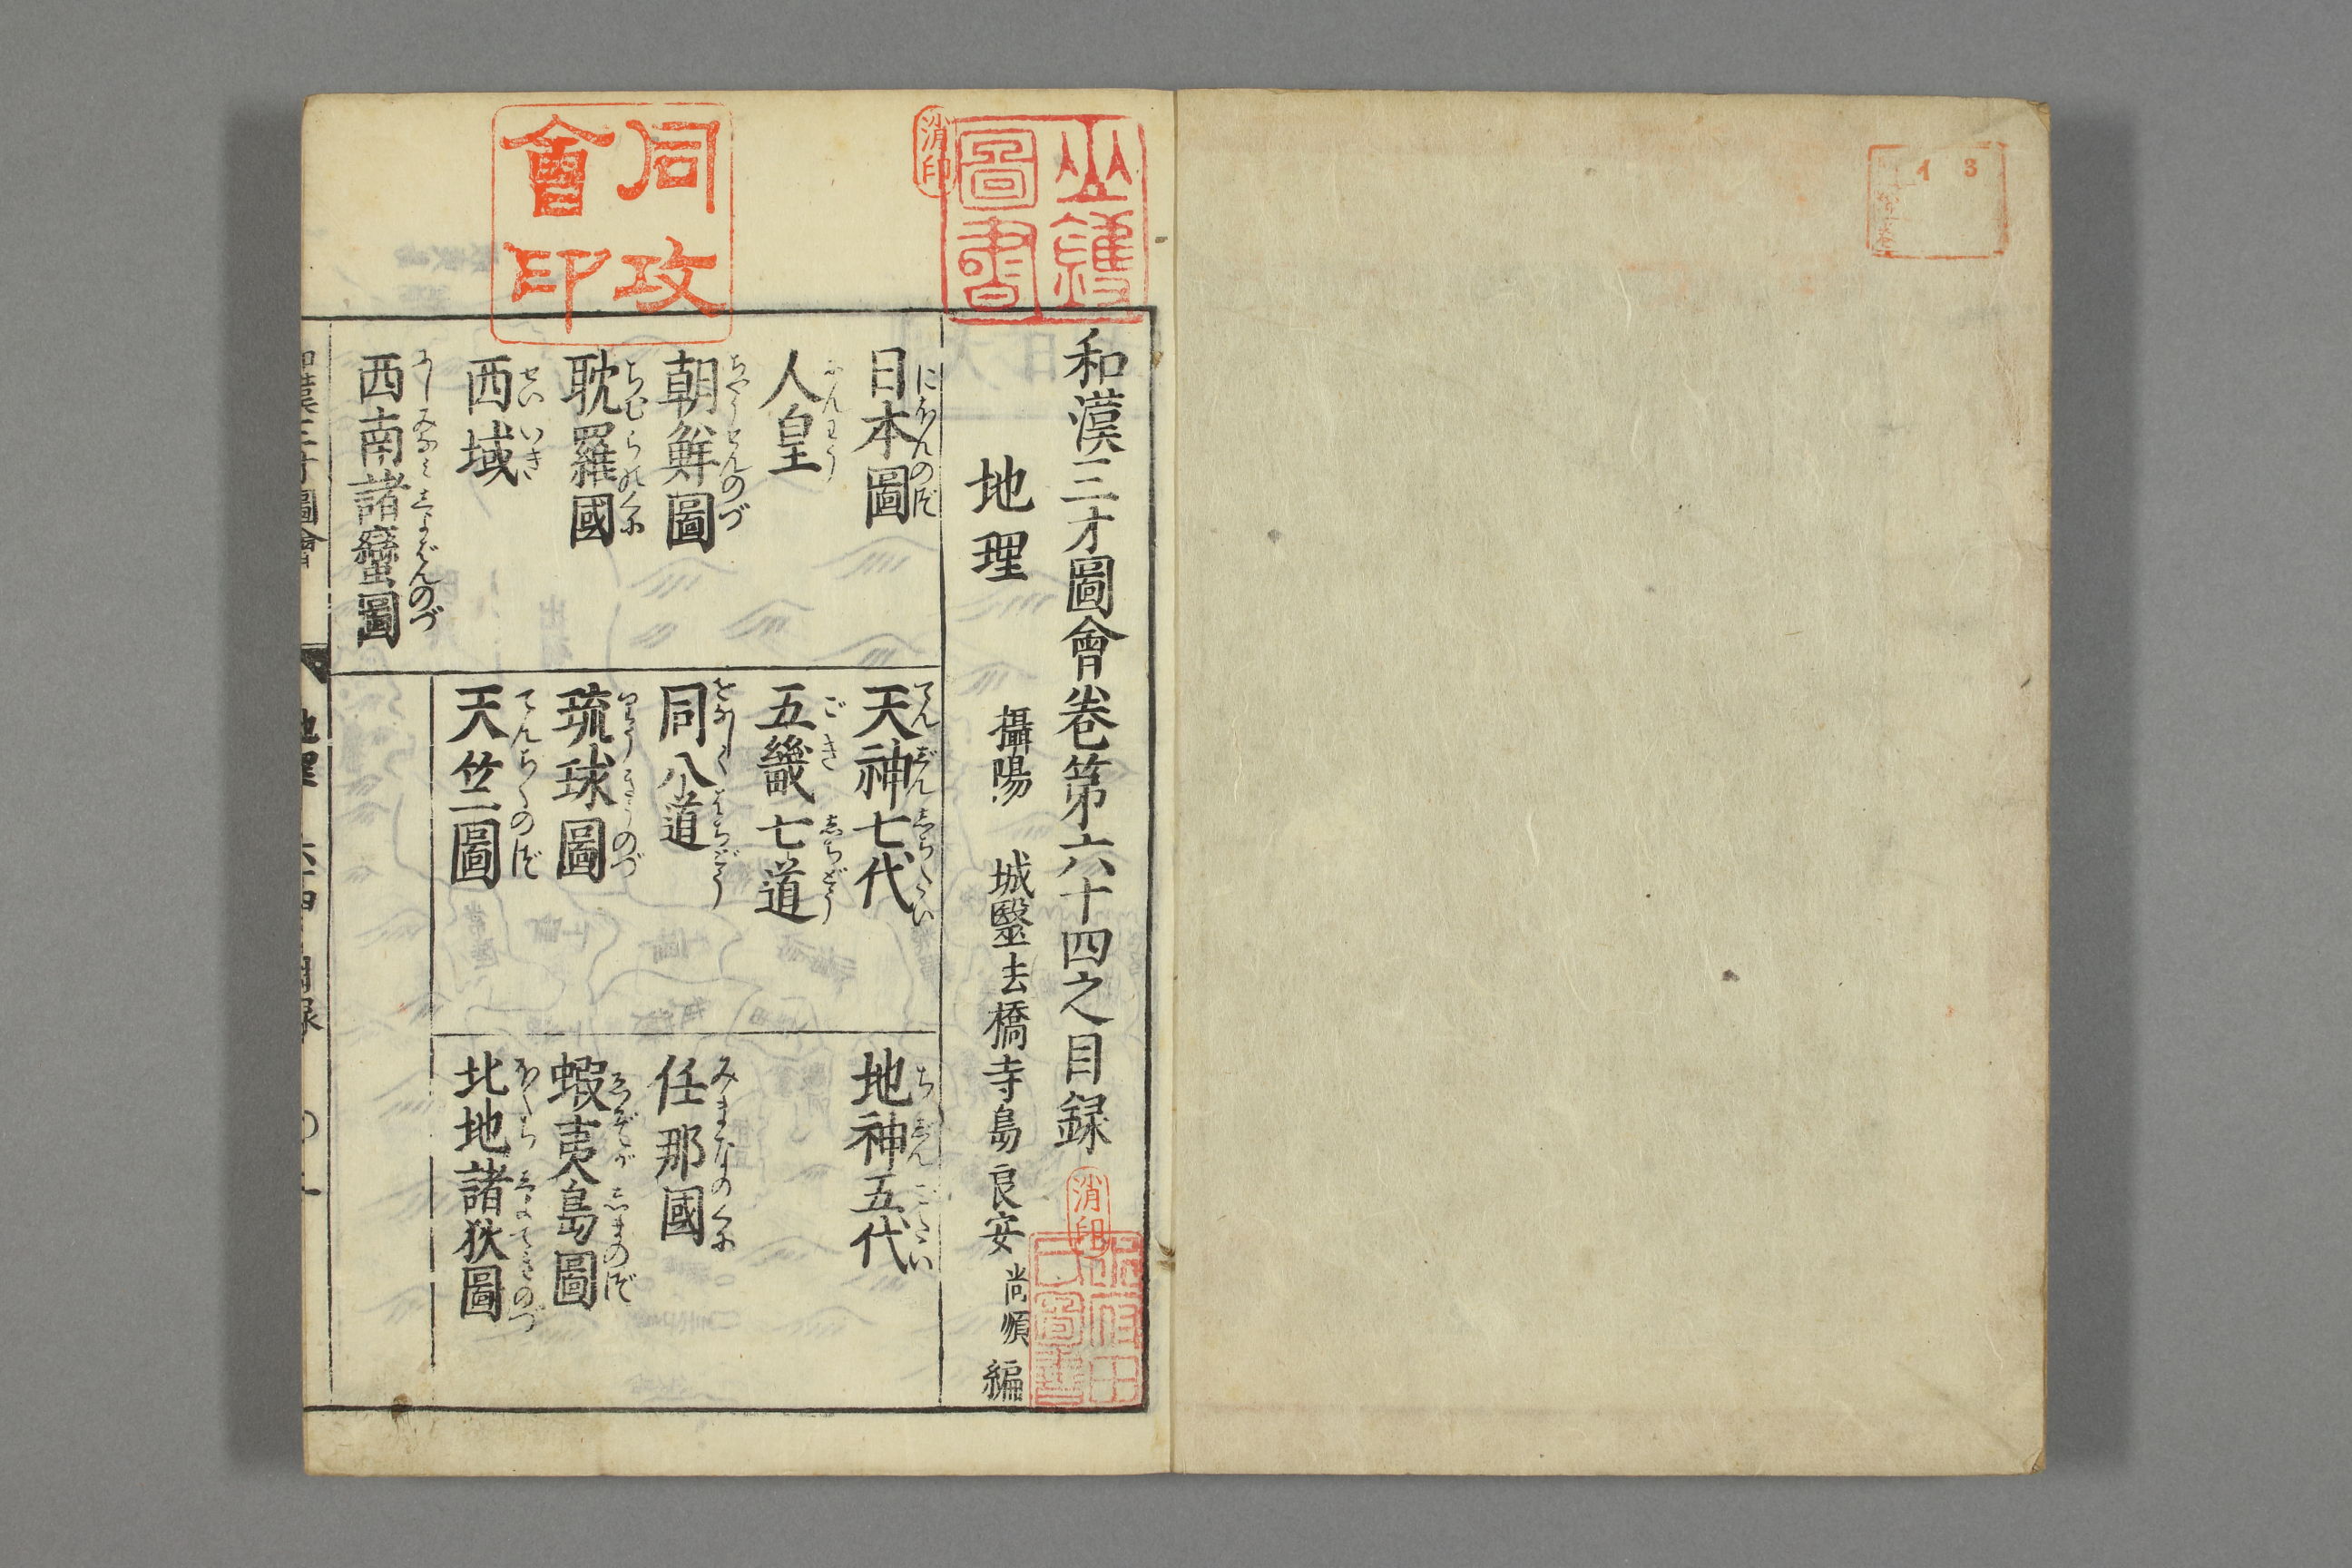 和漢三才圖會卷第六十四之目録
地理
攝陽 城醫法橋寺島良安尚順編
日本圖
にほんのづ
天神七代
てんじんしちだい
地神五代
ちじんごだい
人皇
にんわう
五畿七道
ごきしちどう
朝鮮圖
ちやうせんのづ
同八道
をなじくはちどう
任那國
みまなのくに
耽羅國
ちむらのくに
琉球圖
りうきうのづ
蝦夷島圖
ゑぞがしまのづ
西域
せいいき
天竺圖
てんぢくのづ
北地諸狄圖
ほくちしよてきのづ
西南諸蠻圖
にしみなみしよばんのづ
和漢三才圖會
地理 六十四目録 〇一
同攻會印
圖書
消印
消印
圖書
1 3